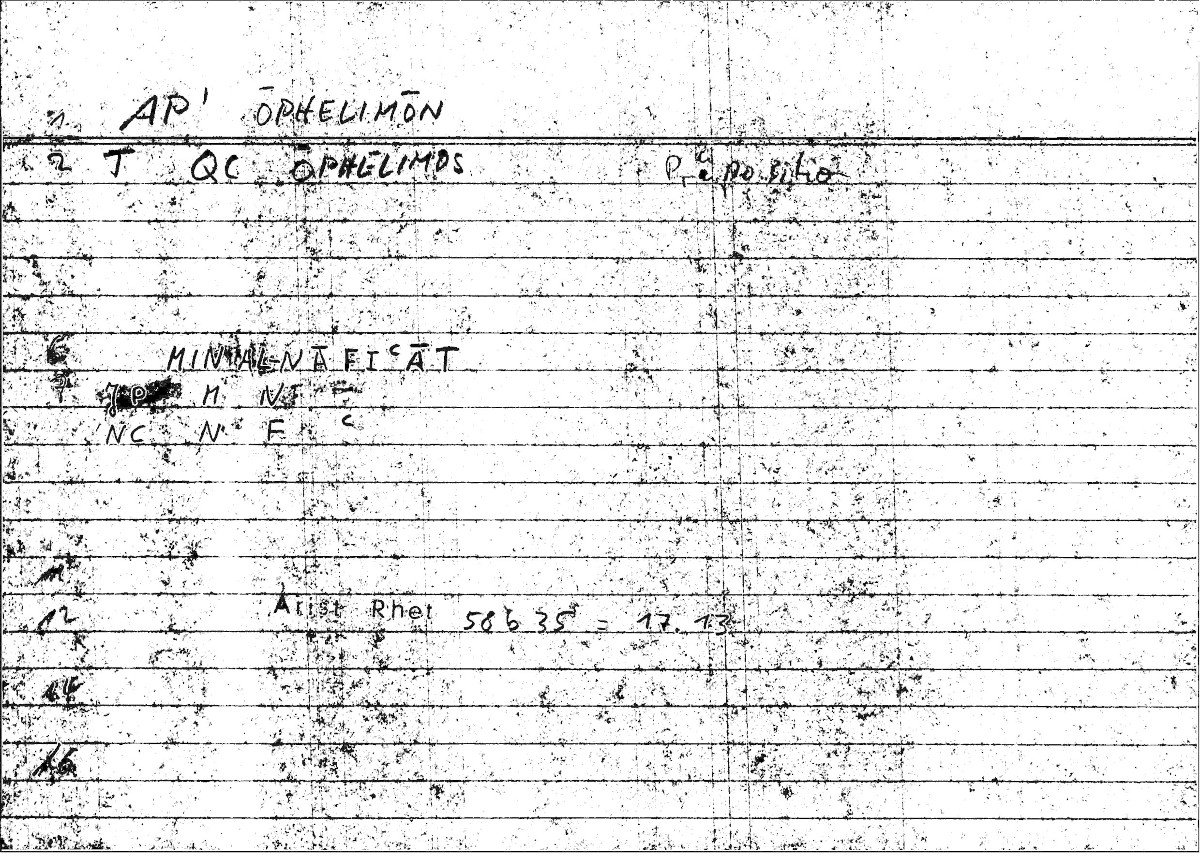 1 AP' ŌPHELIMŌN
2 T QC ŌPHELIMOS Präposition
6 MIN AL-NĀFIʿĀT
7 JP M NF
NC N F ʿ
11
12 Arist Rhet 58b 35 = 17.13
14
16